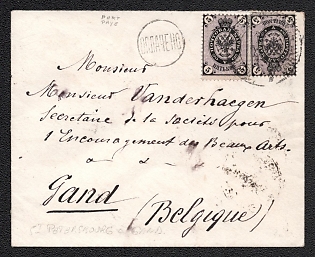 PORT
PAYÉ
ОПЛАЧЕНО
5 5 5 5
Monsieur
Monsieur Vanderhaegen
Secretaire de la Société pour
l'Encouragement des Beaux Arts.
à
Gand (Belgique)